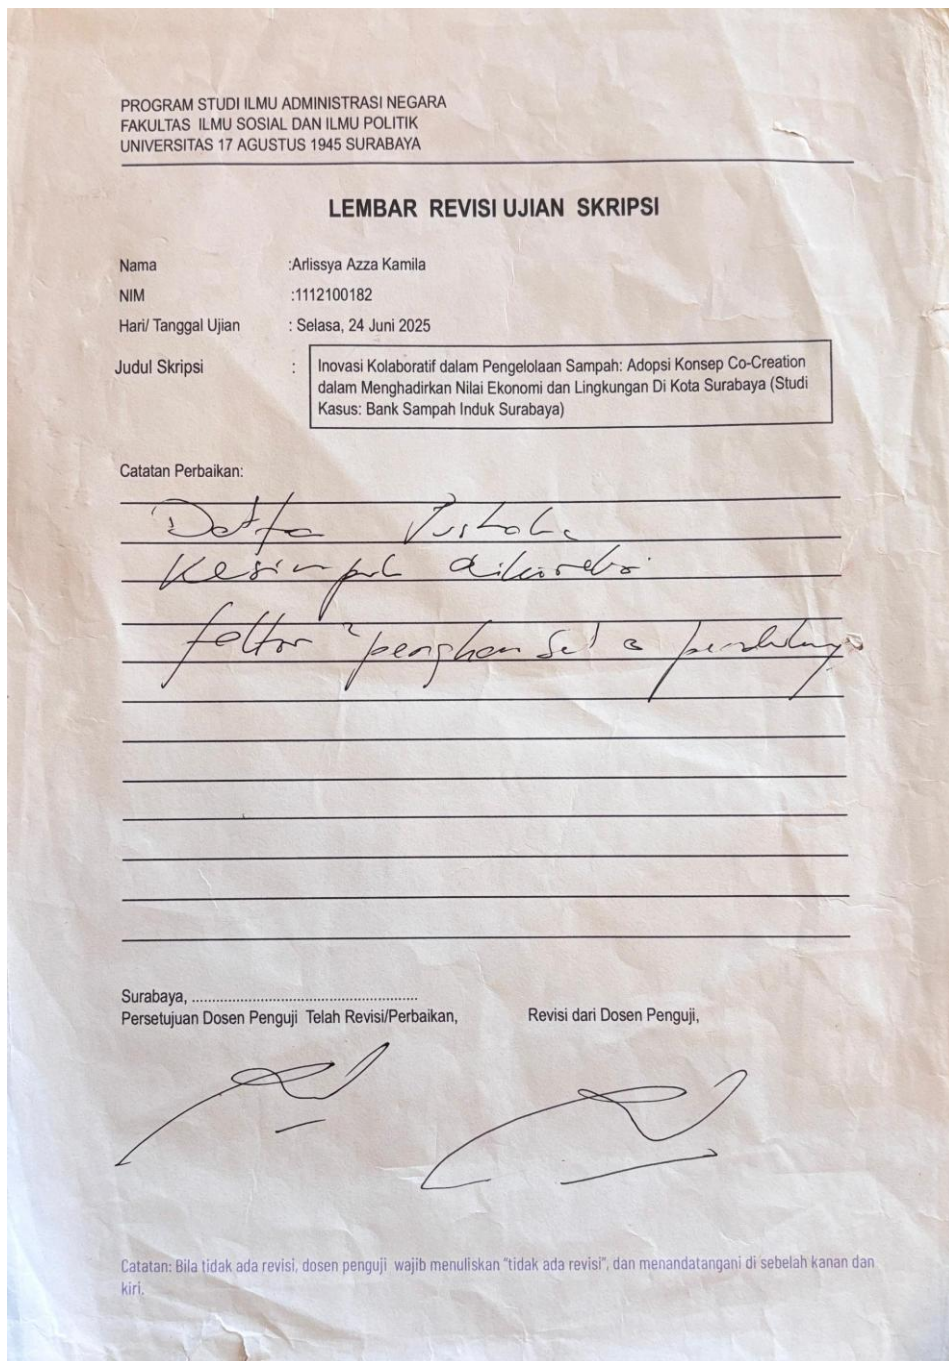 PROGRAM STUDI ILMU ADMINISTRASI NEGARA
FAKULTAS ILMU SOSIAL DAN ILMU POLITIK
UNIVERSITAS 17 AGUSTUS 1945 SURABAYA
LEMBAR REVISI UJIAN SKRIPSI
Nama :Arlissya Azza Kamila
NIM :1112100182
Hari/ Tanggal Ujian : Selasa, 24 Juni 2025
Judul Skripsi : Inovasi Kolaboratif dalam Pengelolaan Sampah: Adopsi Konsep Co-Creation
dalam Menghadirkan Nilai Ekonomi dan Lingkungan Di Kota Surabaya (Studi
Kasus: Bank Sampah Induk Surabaya)
Catatan Perbaikan:
Surabaya, ........................................................
Persetujuan Dosen Penguji Telah Revisi/Perbaikan, Revisi dari Dosen Penguji,
Catatan: Bila tidak ada revisi, dosen penguji wajib menuliskan "tidak ada revisi", dan menandatangani di sebelah kanan dan
kiri.